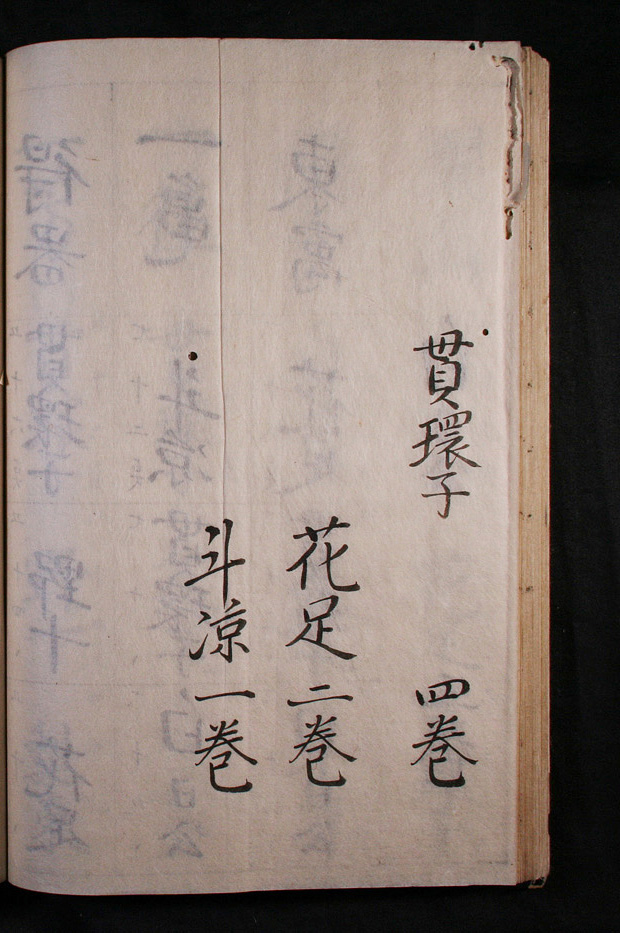 貫環子 四巻
花足 二巻
斗凉 一巻